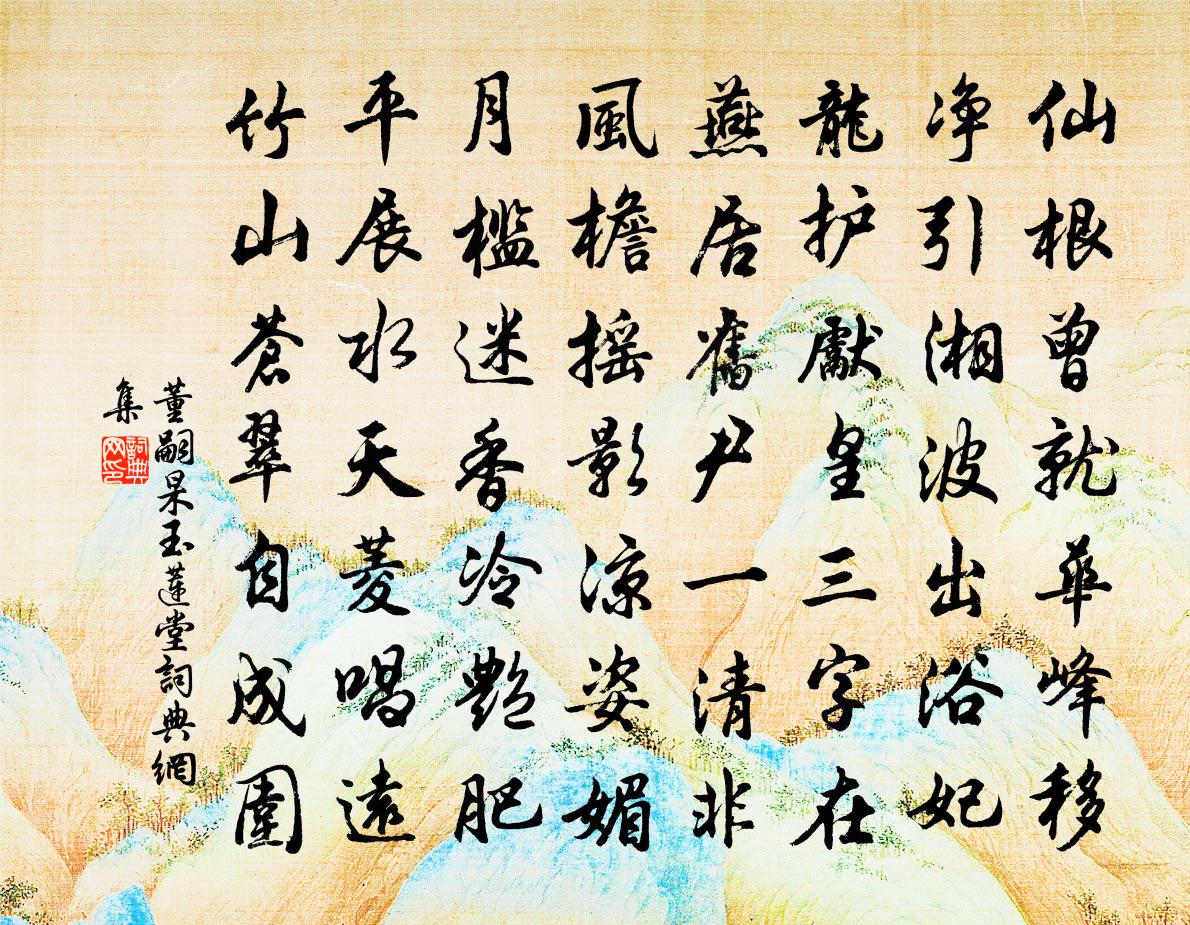 仙根曾就華峰移
净引湘波出浴妃
龍护獻皇三字在
燕居舊尹一清非
風檐摇影凉姿媚
月檻迷香冷艷肥
平展水天菱唱遠
竹山蒼翠自成圍
董嗣杲玉蓮堂詞典網
集
詞典網印